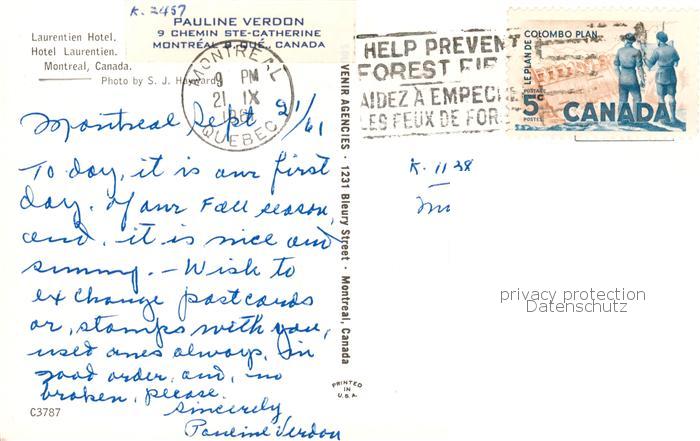 K. 2457
PAULINE VERDON
9 CHEMIN STE-CATHERINE
MONTRÉAL 8, QUÉ., CANADA
Laurentien Hotel.
Hotel Laurentien.
Montreal, Canada.
Photo by S. J. Hayward
MONTREAL
9 PM
21 IX
QUEBEC
HELP PREVENT
FOREST FIR
AIDEZ À EMPECH
LES FEUX DE FOR
COLOMBO PLAN
LE PLAN DE
POSTAGE
5c
POSTES
CANADA
Montreal Sept 21/61
To day, it is our first
day. of our Fall season,
and, it is nice and
sunny. - Wish to
exchange postcards
or, stamps with you,
used ones always, in
good order, and, no
broken, please.
Sincerely
Pauline Verdon
C3787
VENIR AGENCIES · 1231 Bleury Street · Montreal, Canada
PRINTED
IN
U.S.A.
K. 1138
privacy protection
Datenschutz